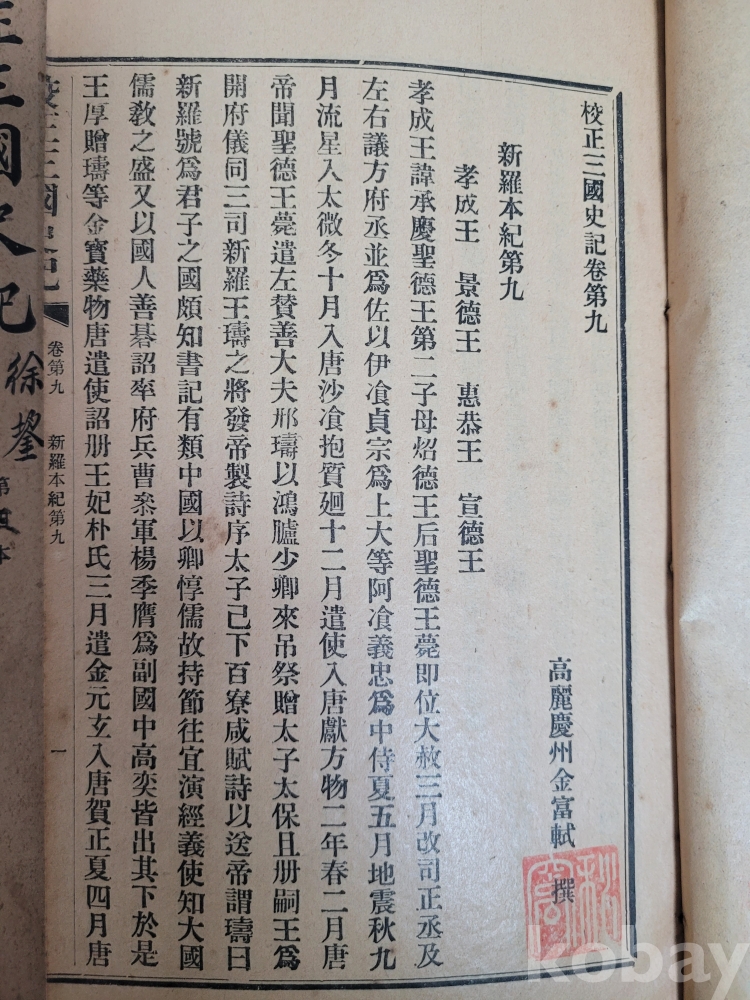 校正三國史記卷第九
高麗慶州金富軾 撰
新羅本紀第九
孝成王 景德王 惠恭王 宣德王
孝成王諱承慶聖德王第二子母炤德王后聖德王薨卽位大赦三月改司正丞及
左右議方府丞並爲佐以伊飡貞宗爲上大等阿飡義忠爲中侍夏五月地震秋九
月流星入太微冬十月入唐沙飡抱質廻十二月遣使入唐獻方物二年春二月唐
帝聞聖德王薨遣左贊善大夫邢璹以鴻臚少卿來吊祭贈太子太保且册嗣王爲
開府儀同三司新羅王璹之將發帝製詩序太子已下百寮咸賦詩以送帝謂璹曰
新羅號爲君子之國頗知書記有類中國以卿惇儒故持節往宜演經義使知大國
儒敎之盛又以國人善碁詔率府兵曹叅軍楊季膺爲副國中高奕皆出其下於是
王厚贈璹等金寶藥物唐遣使詔册王妃朴氏三月遣金元玄入唐賀正夏四月唐
卷第九 新羅本紀第九
一
三國史記
kobay